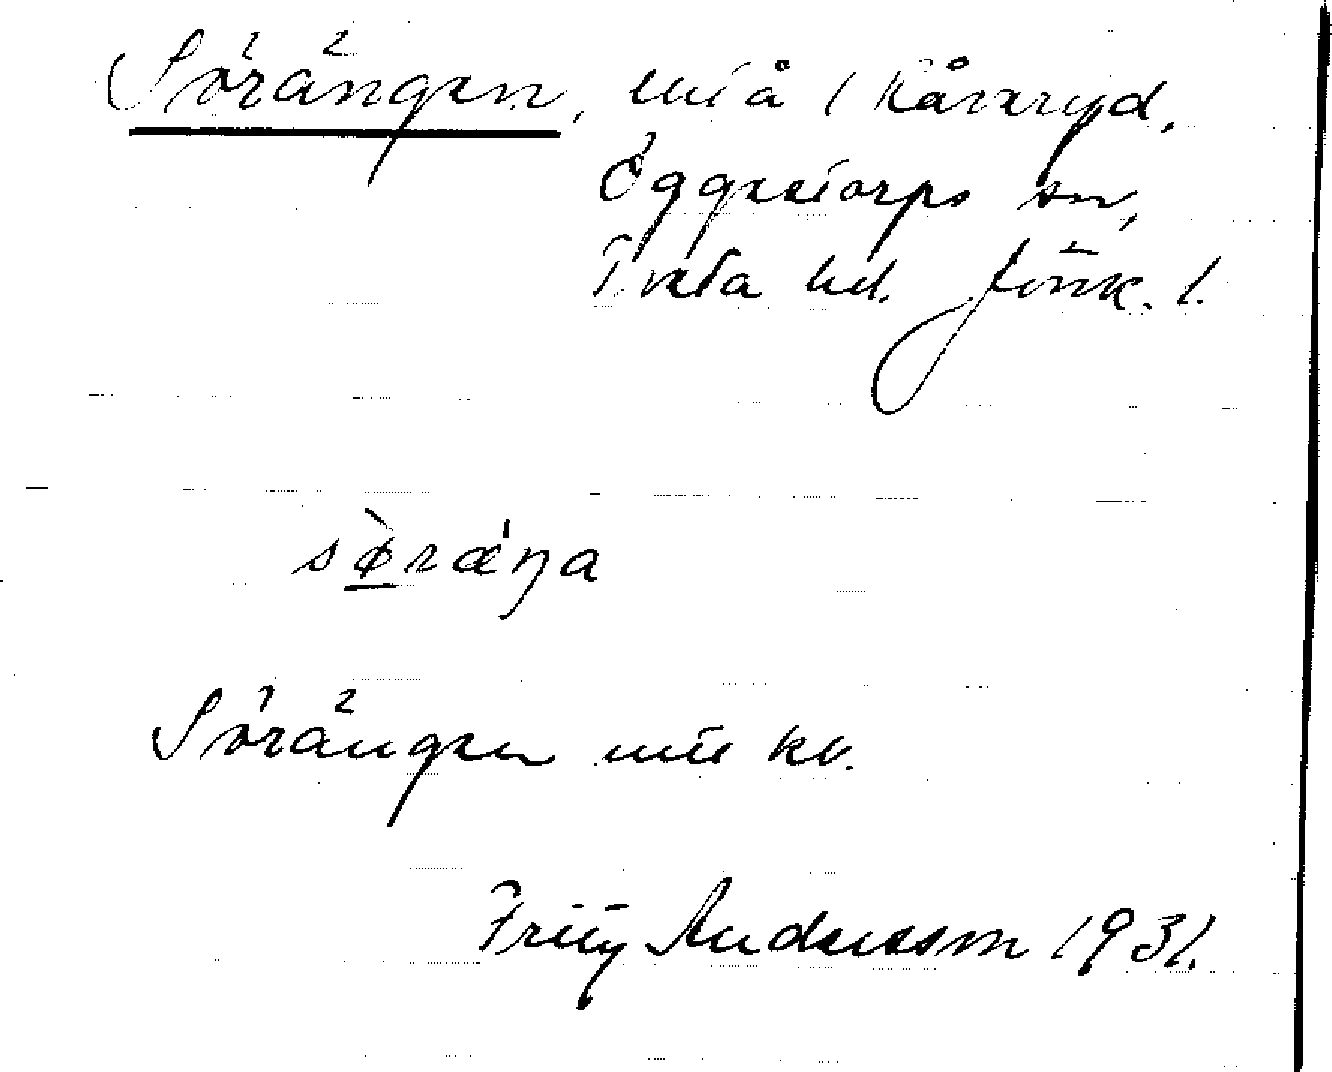 Sörängen, utså i Råvaryd,
Öggestorps sn,
Tveta hd. Jönk. l.
sø̀ræ'ŋa
Sörängen kv.
Fritz Andersson 1931.